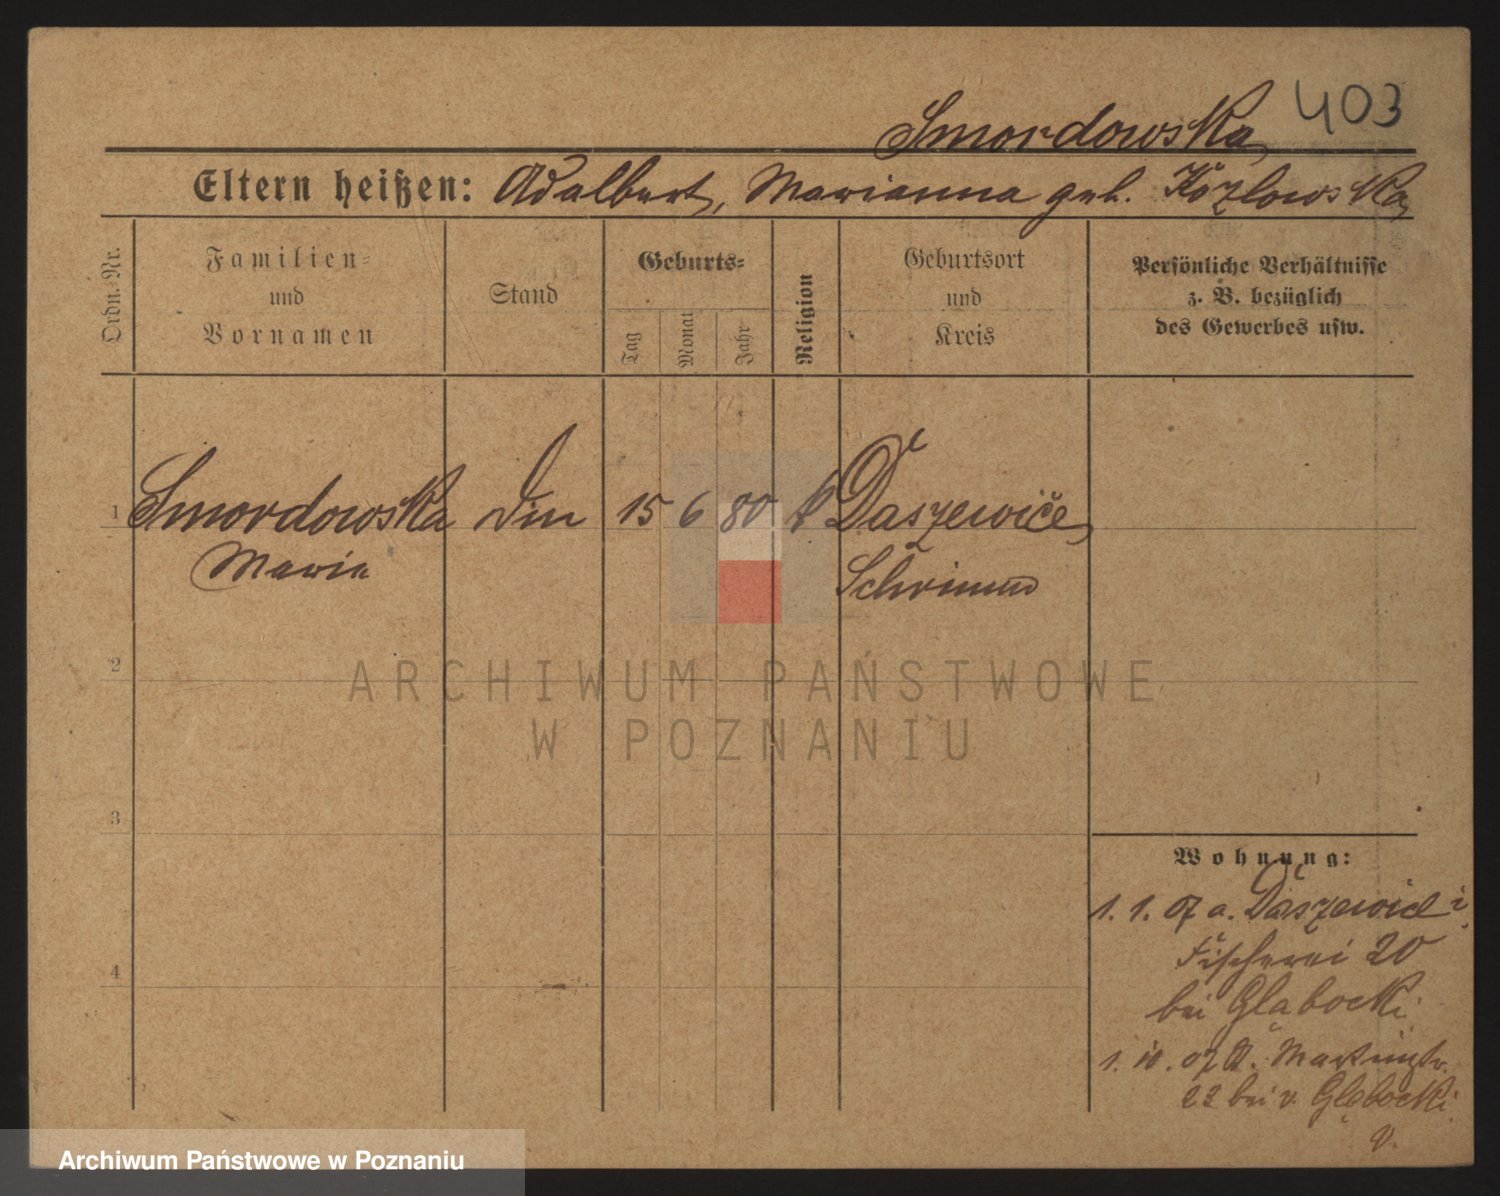 Smordowska 403
Eltern heißen: Adalbert, Marianna geb. Kozlowska
Ordn.-Nr.
Familien-
und
Vornamen
Stand
Geburts-
Tag
Monat
Jahr
Religion
Geburtsort
und
Kreis
Persönliche Verhältnisse
z. B. bezüglich
des Gewerbes usw.
1 Smordowska 15 6 80 k Daszewice,
Maria Schrimm
2
3
4
Wohnung:
1. 1. 07 a. Daszewice
Fischerei 20
bei Głabocki
1. 10. 07 Martinstr.
22 bei v. Głębocki
ARCHIWUM PAŃSTWOWE
W POZNANIU
Archiwum Państwowe w Poznaniu